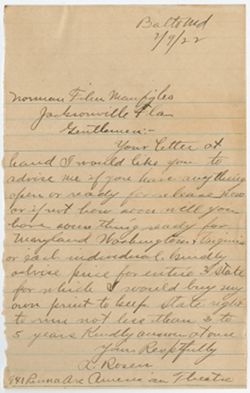 Balto Md
2/9/22
Norman Film Manfg Co
Jacksonville Fla
Gentlemen:-
Your letter at
hand I would like you to
advise me if you have anything
open or ready for release now
or if not how soon will you
have something ready for
Maryland Washington & Virginia
or each individual. Kindly
advise price for entire 3 State
for which I would buy my
own print to keep State right
to run not less than 3 to
5 years Kindly answer at once
Yours Respectfully
Rosen
Penna Ave American Theatre